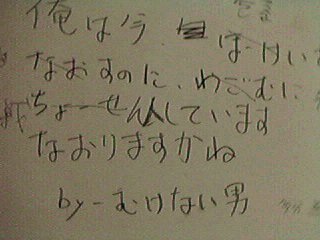 俺は今 ほーけい
なおすのに、わごむに
ちょーせんしています
なおりますかね
by-むけない男